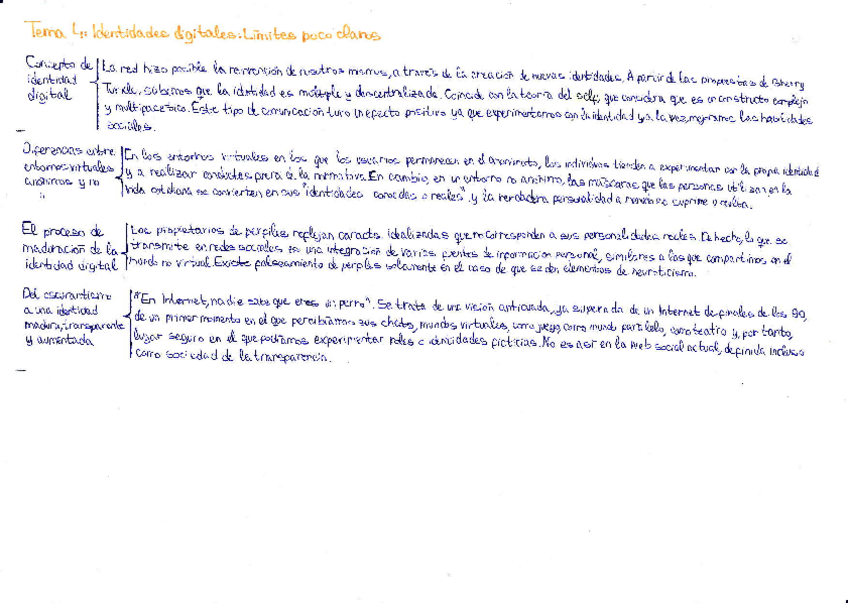 Tema 4: Identidades digitales: Límites poco claros
Concepto de
identidad
digital
La red hizo posible la reinvención de nosotros mismos, a través de la creación de nuevas identidades. A partir de las propuestas de Sherry
Turkle, sabemos que la identidad es múltiple y descentralizada. Coincide con la teoría del self, que considera que es un constructo complejo
y multifacético. Este tipo de comunicación tuvo un efecto positivo ya que experimentamos con la identidad y a la vez mejoramos las habilidades
sociales.
Diferencias entre
entornos virtuales
anónimos y no
En los entornos virtuales en los que los usuarios permanecen en el anonimato, los individuos tienden a experimentar con la propia identidad
y a realizar conductas fuera de la normativa. En cambio, en un entorno no anónimo, las máscaras que las personas utilizan en la
vida cotidiana se convierten en sus "identidades conocidas o reales" y la verdadera personalidad a menudo se suprime o oculta.
El proceso de
maduración de la
identidad digital
Los propietarios de perfiles reflejan caracts. idealizadas que no corresponden a sus personalidades reales. De hecho, lo que se
transmite en redes sociales es una integración de varias fuentes de información personal, similares a las que compartimos en el
mundo no virtual. Existe falseamiento de perfiles solamente en el caso de que se den elementos de neuroticismo.
Del oscurantismo
a una identidad
madura, transparente
y aumentada
"En Internet, nadie sabe que eres un perro". Se trata de una visión anticuada, ya superada de un Internet de finales de los 90,
de un primer momento en el que percibíamos sus chats, mundos virtuales, como juego, como mundo paralelo, como teatro y, por tanto,
lugar seguro en el que podíamos experimentar roles e identidades ficticias. No es así en la web social actual, definida incluso
como sociedad de la transparencia.